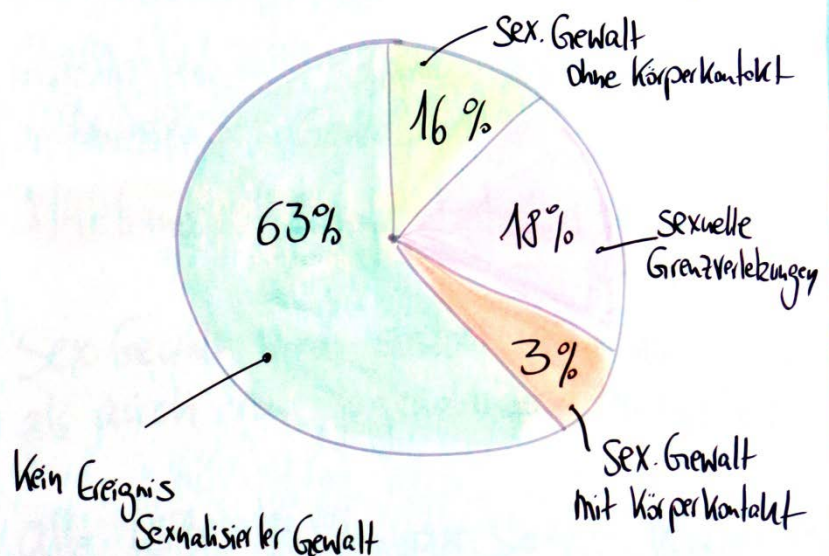 Sex. Gewalt
ohne Körperkontakt
16 %
63%
18%
sexuelle
Grenzverletzungen
3%
Sex. Gewalt
mit Körperkontakt
Kein Ereignis
sexualisierter Gewalt